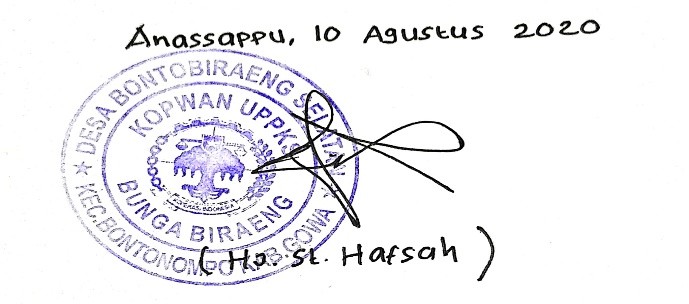 Anassappu, 10 Agustus 2020
★ DESA BONTOBIRAENG SELATAN ★
KOPWAN UPPKS
BUNGA BIRAENG
KEC.BONTONOMPO KAB GOWA
( Hj. St. Hafsah )